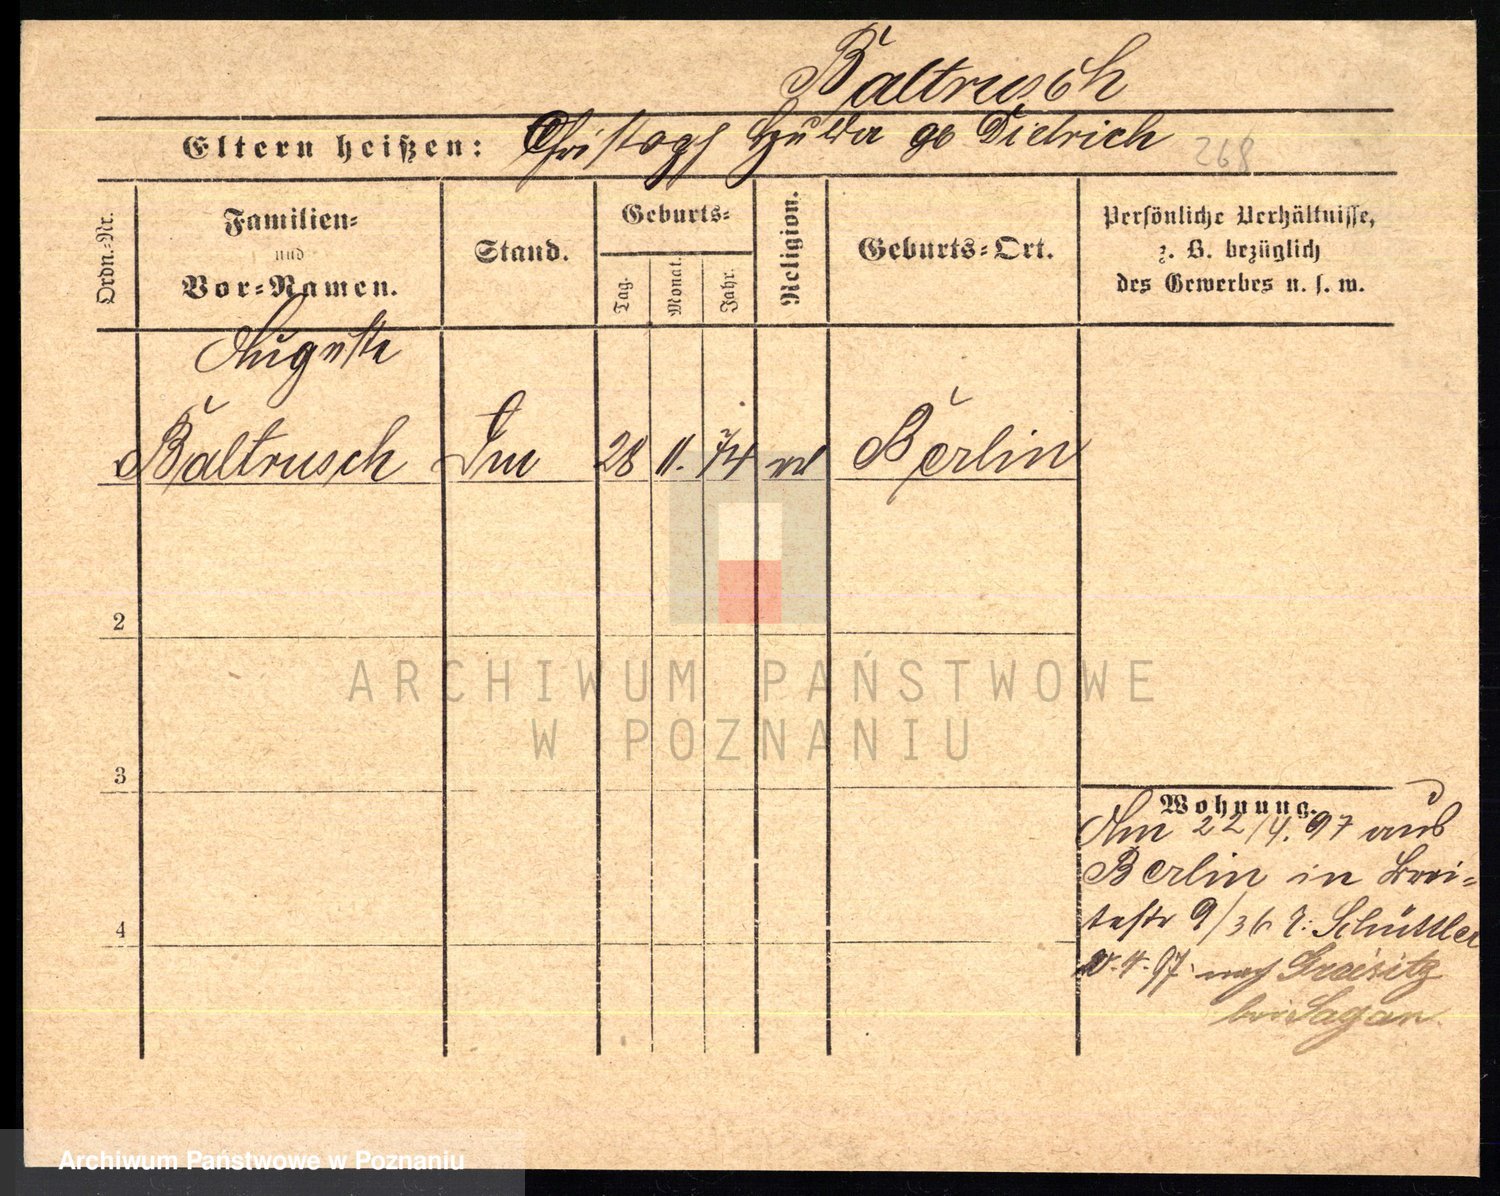 Baltrusch
Eltern heißen: Christoph Hulda gb Dietrich 268
Ordn.-Nr.
Familien-
und
Vor-Namen.
Stand.
Geburts-
Tag.
Monat.
Jahr.
Religion.
Geburts-Ort.
Persönliche Verhältnisse,
z. B. bezüglich
des Gewerbes u. s. w.
Auguste
Baltrusch 28 11. 74 Berlin
2
3
4
Wohnung.
Am 22/4. 97 aus
Berlin in Brei-
testr 9/36 Schüttler
97 nach
bei Sagan
ARCHIWUM PAŃSTWOWE
W POZNANIU
Archiwum Państwowe w Poznaniu